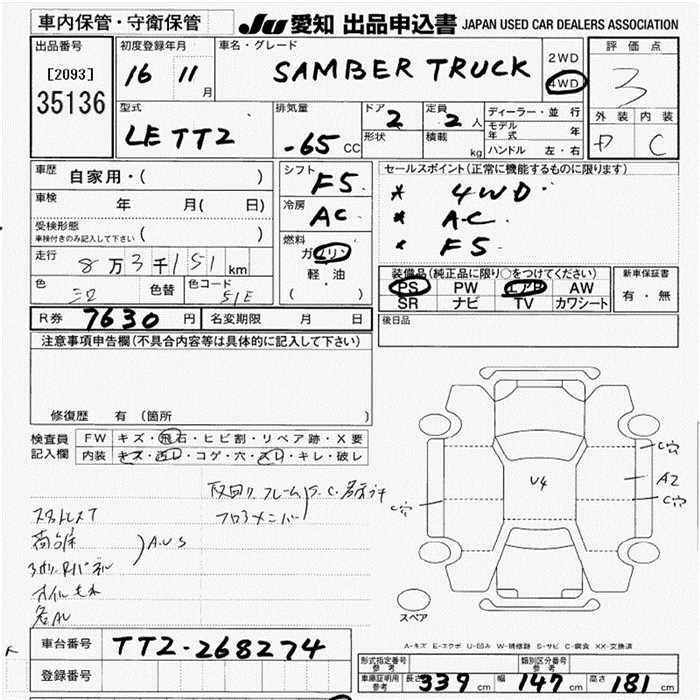 車内保管・守衛保管 JU 愛知 出品申込書 JAPAN USED CAR DEALERS ASSOCIATION
出品番号 初度登録年月 車名・グレード 2WD 評価点
[2093] 16 11 月 SAMBER TRUCK 4WD 3
35136
型式 排気量 ドア 定員 ディーラー・並行 外装 内装
LE TT2 -65 CC 2 2 人 モデル年式 年 C
形状 積載 kg ハンドル 左・右
車歴 自家用・( ) シフト F5 セールスポイント(正常に機能するものに限ります)
車検 年 月( 日) 冷房 AC * 4WD
受検形態 * A-C
車検付きのみ記入して下さい ( ) 燃料 * F5
走行 8万3千151 km ガソリン 装備品(純正品に限り○をつけてください) 新車保証書
色 色替 色コード 51E 軽・油 PS PW エアB AW 有・無
( ) SR ナビ TV カワシート
R券 7630 円 名変期限 月 日 後日品
注意事項申告欄(不具合内容等は具体的に記入して下さい)
修復歴 有 (箇所 )
検査員 FW キズ・飛石・ヒビ割・リペア跡・X要
記入欄 内装 キズ・汚レ・コゲ・穴・スレ・キレ・破レ
C穴
U4 A2
C穴 C穴
スタッドレスT
A.U.S
スペア
A-キズ E-エクボ U-凹み W-補修跡 S-サビ C-腐食 XX-交換済
車台番号 TT2-268274 型式指定番号 参考 類別区分番号 参考
登録番号 車庫証明用 参考 長さ 339 cm 幅 147 cm 高さ 181 cm